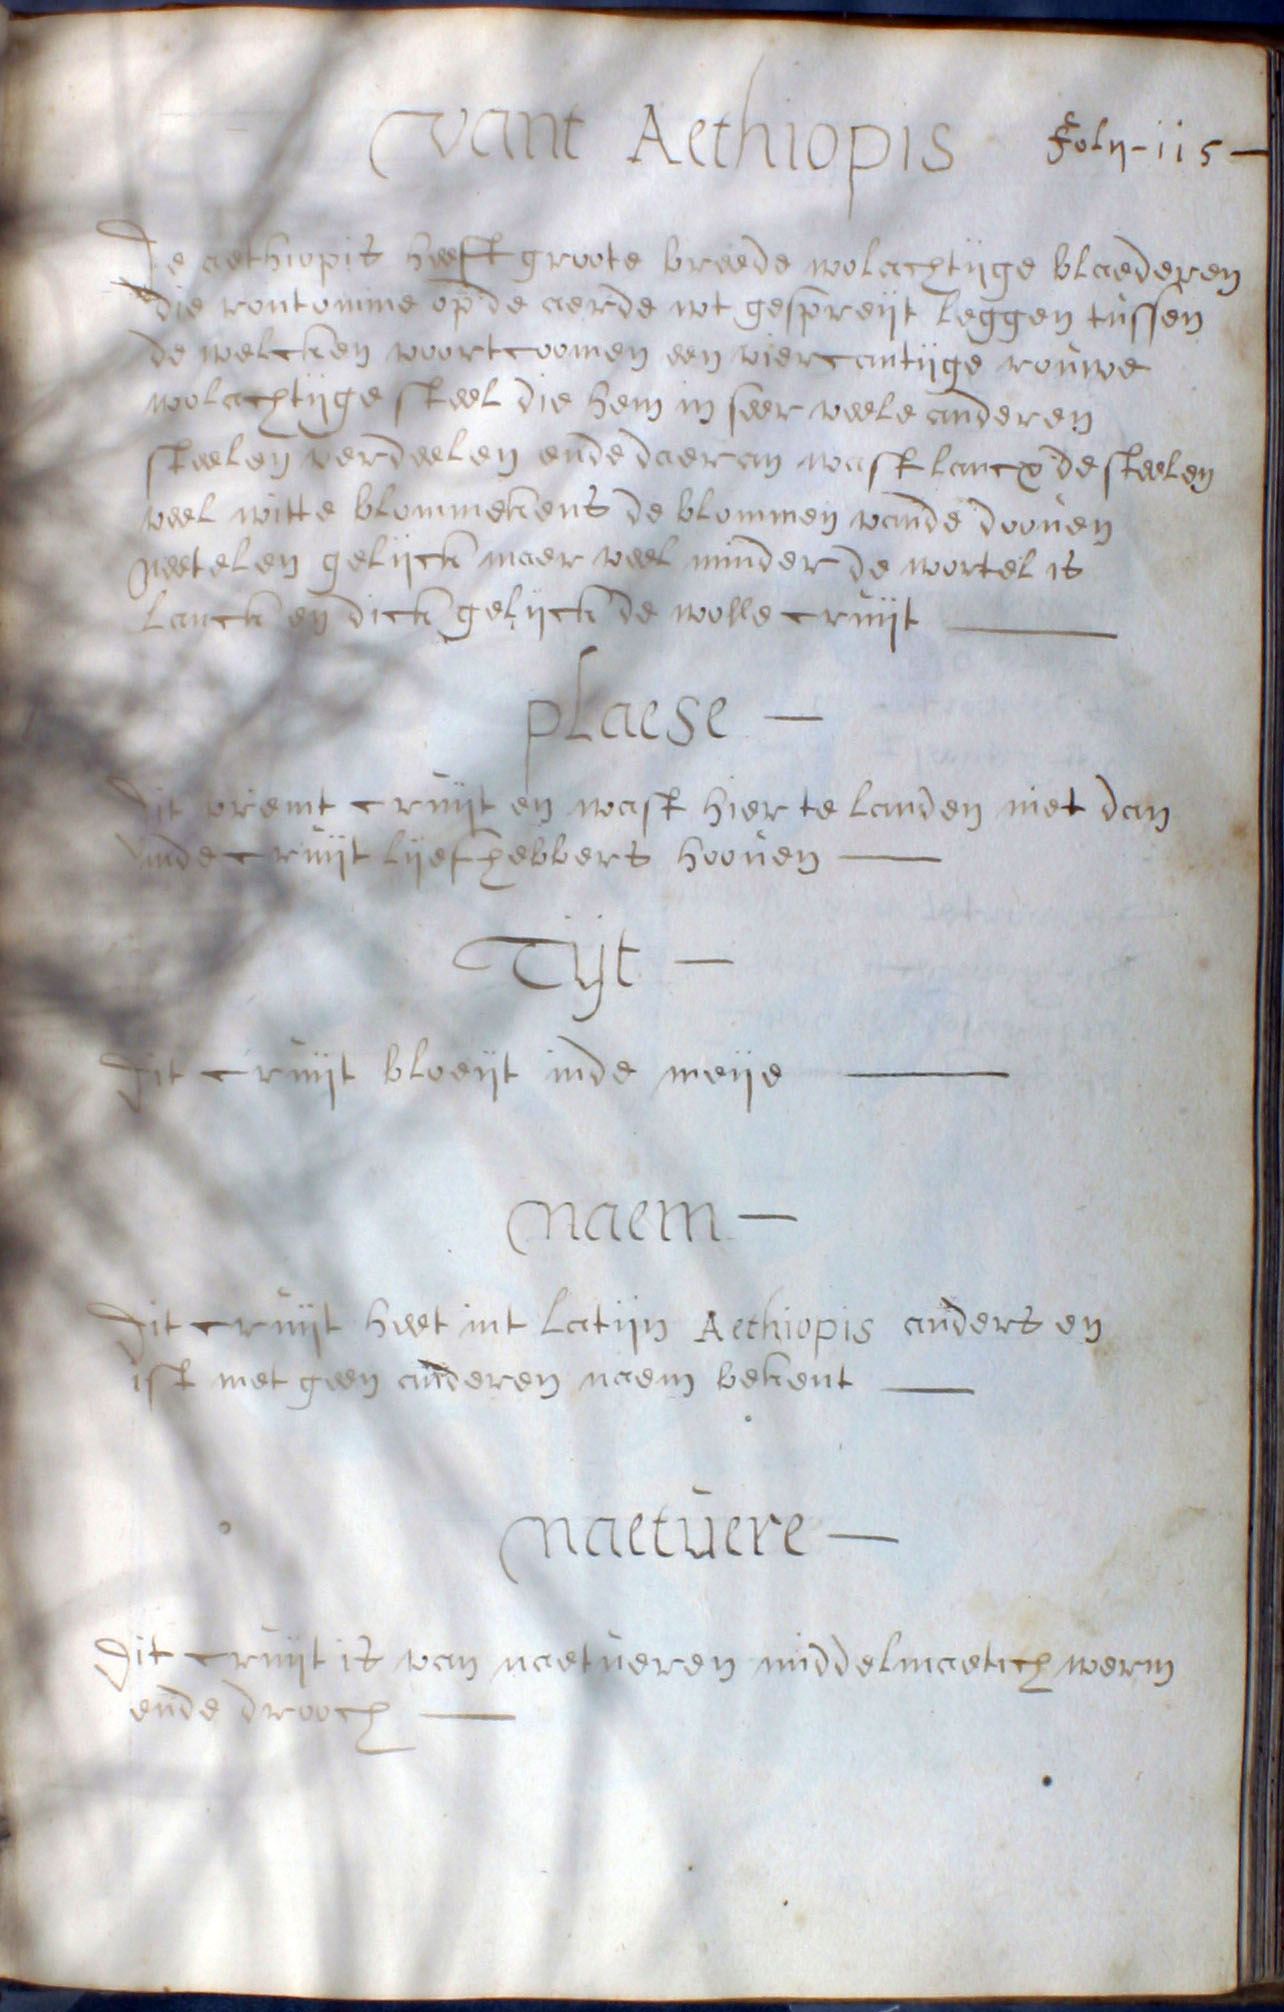 vant Aethiopis
foly-115-
De aethiopis heeft groote breede wolachtijge blaederen
die rontomme op de aerde wt gespreijt leggen tussen
de welcken voortcoomen een viercantijge rouwe
wolachtijge steel die hem in seer veele anderen
steelen verdeelen ende daer an wast lancx de steelen
veel witte blommekens de blommen vande dooven
neetelen gelijck maer veel minder de wortel is
lanck en dick gelijck de wolle cruijt —
plaese —
Dit vremt cruijt en wast hier te landen niet dan
inde cruijt lijefhebbers hooven —
Tijt —
Dit cruijt bloeijt inde meije —
naem —
Dit cruijt heet int latijn Aethiopis anders en
ist met geen anderen naem bekent —
naetuere —
Dit cruijt is van naetueren middelmaetich werm
ende drooch —